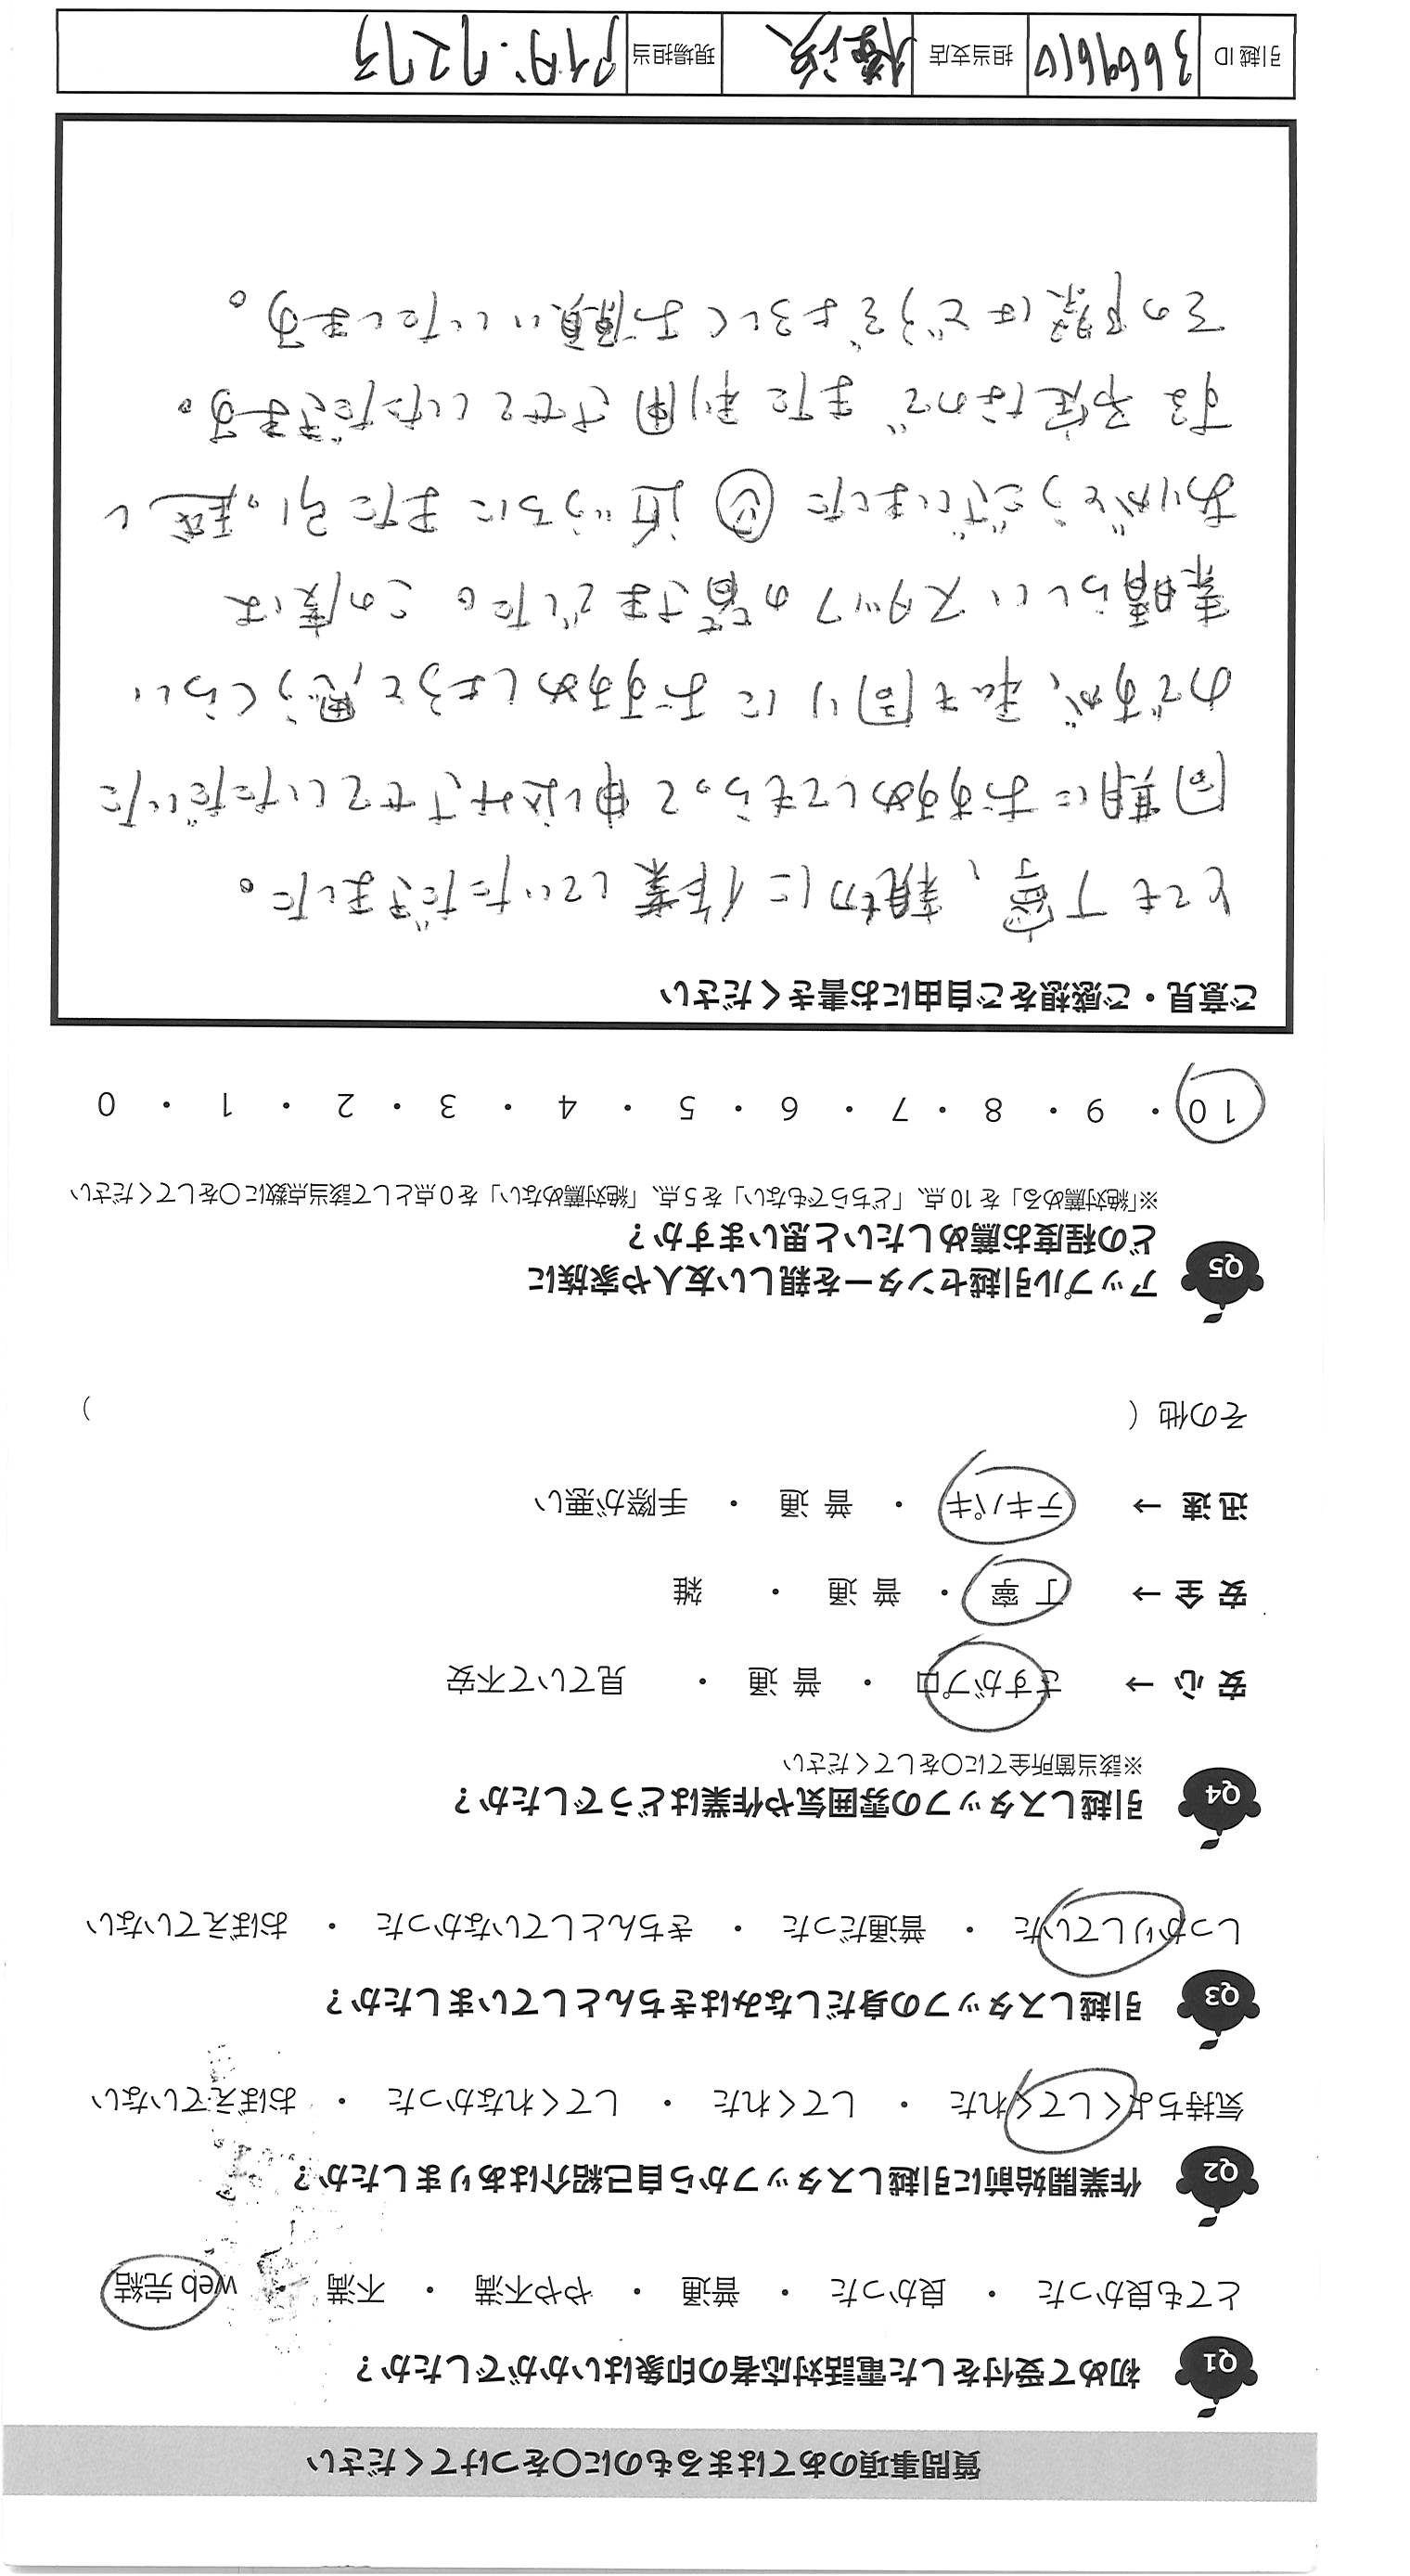 質問事項のあてはまるものに○をつけてください
Q1 初めて受付をした電話対応者の印象はいかがでしたか？
とても良かった ・ 良かった ・ 普通 ・ やや不満 ・ 不満 ・ web 完結
Q2 作業開始前に引越しスタッフから自己紹介はありましたか？
気持ちよくしてくれた ・ してくれた ・ してくれなかった ・ おぼえていない
Q3 引越しスタッフの身だしなみはきちんとしていましたか？
しっかりしていた ・ 普通だった ・ きちんとしていなかった ・ おぼえていない
Q4 引越しスタッフの雰囲気や作業はどうでしたか？
※該当箇所全てに○をしてください
安 心 → さすがプロ ・ 普 通 ・ 見ていて不安
安 全 → 丁 寧 ・ 普 通 ・ 雑
迅 速 → テキパキ ・ 普 通 ・ 手際が悪い
その他 （ ）
Q5 アップル引越センターを親しい友人や家族に
どの程度お薦めしたいと思いますか？
※「絶対薦める」を 10 点、「どちらでもない」を 5 点、「絶対薦めない」を 0 点として該当点数に○をしてください
10 ・ 9 ・ 8 ・ 7 ・ 6 ・ 5 ・ 4 ・ 3 ・ 2 ・ 1 ・ 0
ご意見・ご感想をご自由にお書きください
とても丁寧、親切に作業していただきました。
同期におすすめしてもらって申し込みさせていただいた
のですが、私も周りにおすすめしようと思うくらい
素晴らしいスタッフの皆さまでした。この度は
ありがとうございました 近いうちにまた引っ越し
する予定なので また利用させていただきます。
その際はどうぞよろしくお願いいたします。
引越 ID 担当支店 横浜 現場担当